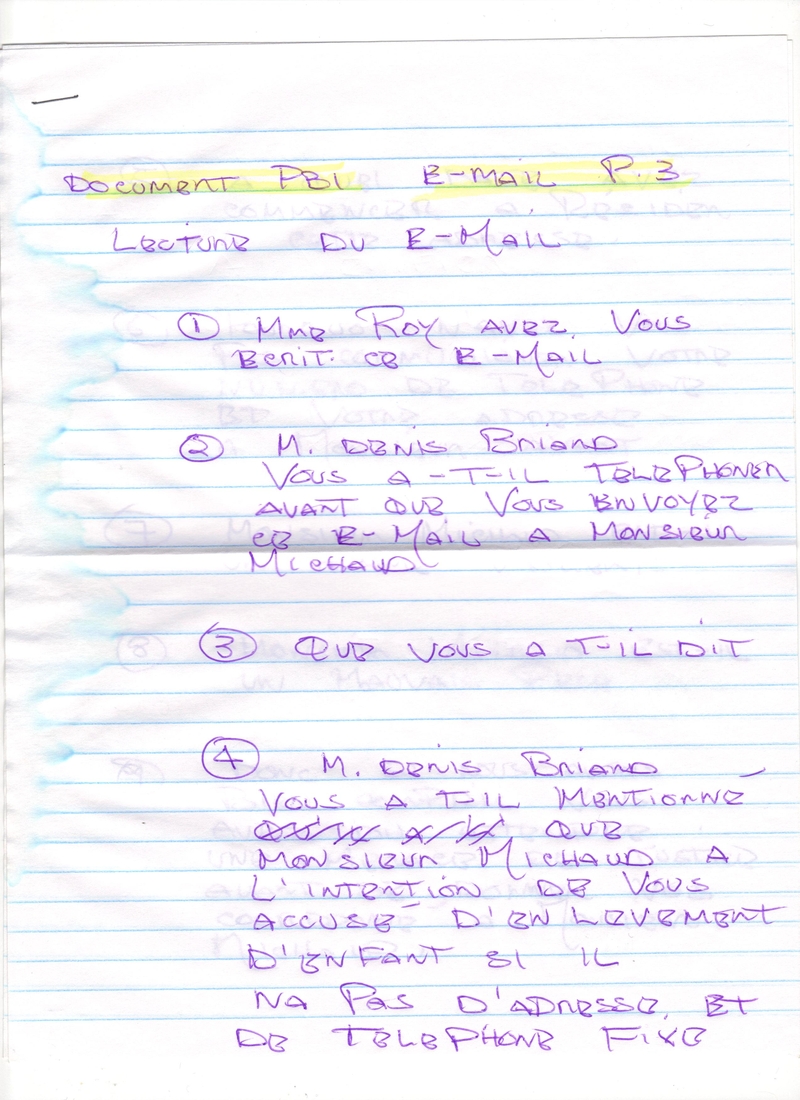 DOCUMENT PB1 E-MAIL P.3
LECTURE DU E-MAIL
① MME ROY AVEZ VOUS
ECRIT CE E-MAIL
② M. DENIS BRIAND
VOUS A-T-IL TELEPHONER
AVANT QUE VOUS ENVOYEZ
CE E-MAIL A MONSIEUR
MICHAUD
③ QUE VOUS A T-IL DIT
④ M. DENIS BRIAND
VOUS A T-IL MENTIONNÉ
QUE
MONSIEUR MICHAUD A
L'INTENTION DE VOUS
ACCUSE D'ENLEVEMENT
D'ENFANT SI IL
NA PAS D'ADRESSE, ET
DE TELEPHONE FIXE